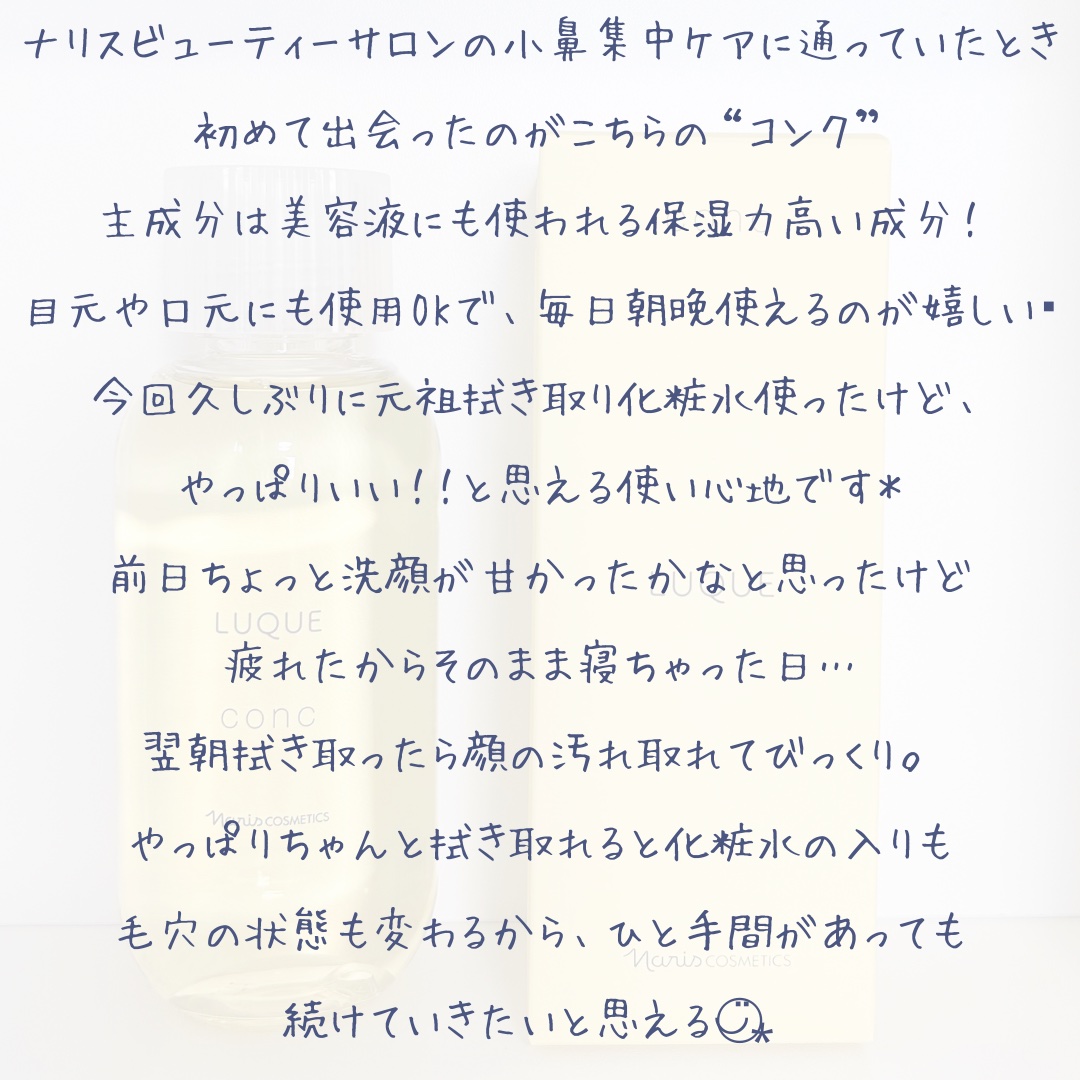 ナリスビューティーサロンの小鼻集中ケアに通っていたとき
初めて出会ったのがこちらの“コンク”
主成分は美容液にも使われる保湿力高い成分！
目元や口元にも使用OKで、毎日朝晩使えるのが嬉しい▪
今回久しぶりに元祖拭き取り化粧水使ったけど、
やっぱりいい！！と思える使い心地です*
前日ちょっと洗顔が甘かったかなと思ったけど
疲れたからそのまま寝ちゃった日…
翌朝拭き取ったら顔の汚れ取れてびっくり。
やっぱりちゃんと拭き取れると化粧水の入りも
毛穴の状態も変わるから、ひと手間があっても
続けていきたいと思える☺︎*
LUQUE
conc
Naris COSMETICS
LUQUE
Naris COSMETICS